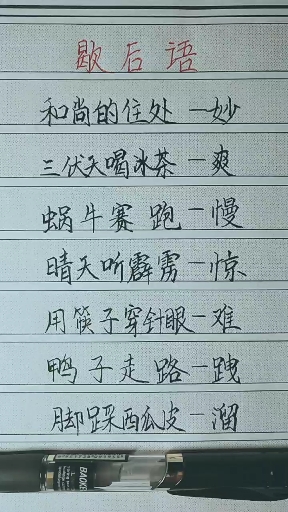 歇后语
和尚的住处一妙
三伏天喝冰茶一爽
蜗牛赛跑一慢
晴天听霹雳一惊
用筷子穿针眼一难
鸭子走路一跩
脚踩西瓜皮一溜